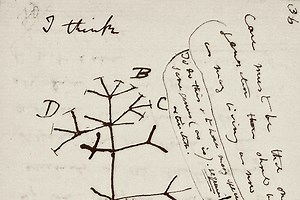 I think
B
D
C
(36
Case must be that one
generation then should be
as many living as now
To do this & to have many species
same genus (as is), requires
extinction.